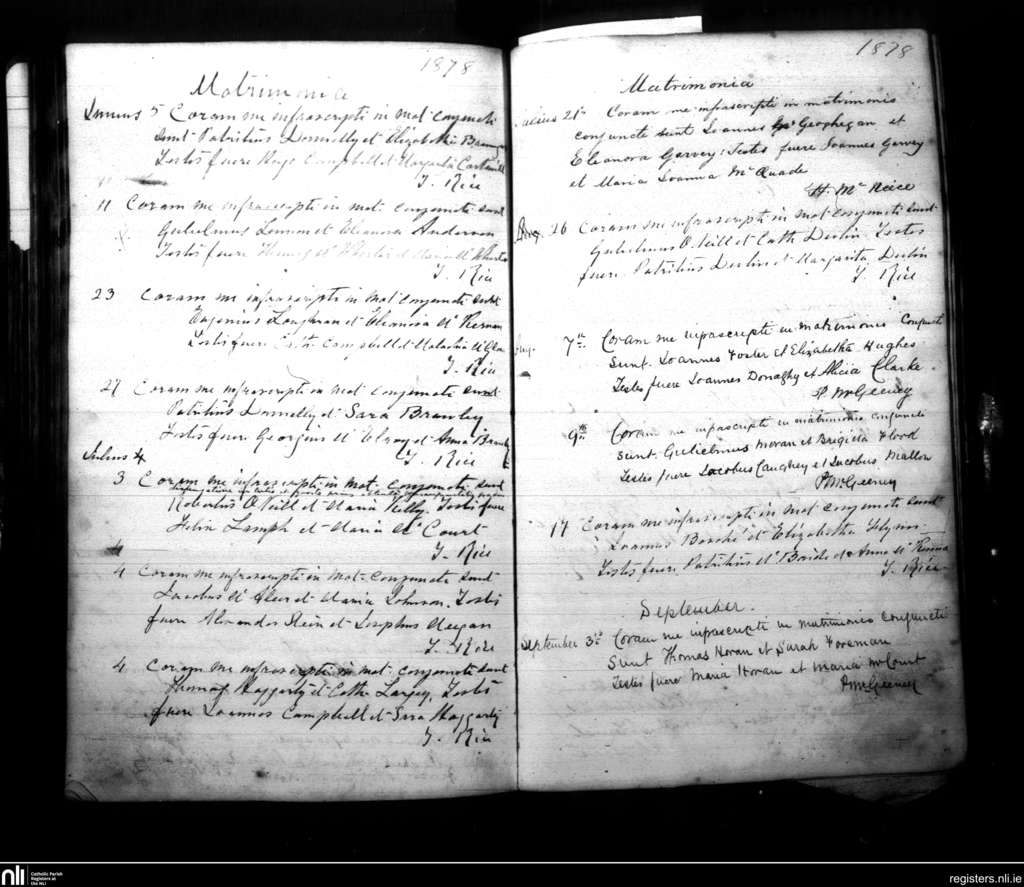 1878
Matrimonia
Junius 5 Coram me infrascripti in mat. conjuncti
sunt Patritius Donnelly et Elizabetha
Testes fuere Hugo Campbell et Margarita
T. Rice
11 Coram me infrascripti in mat. conjuncti sunt
Gulielmus et Eleanora Anderson
Testes fuere Thomas et
T. Rice
23 Coram me infrascripti in mat. conjuncti sunt
Eugenius Loughran et Eleanora Mc Kernan
Testes fuere Cath. Campbell et Malachia
T. Rice
27 Coram me infrascripti in mat. conjuncti sunt
Patritius Donnelly et Sara Brawley
Testes fuere Georgius Mc Elroy et Anna
T. Rice
Julius 4
3 Coram me infrascripti in mat. conjuncti sunt
Robertus O Neill et Maria Kelly. Testes fuere
Felix et Maria Mc Court
T. Rice
4
4 Coram me infrascripti in mat. conjuncti sunt
Jacobus Mc et Maria Johnson. Testes
fuere Alexander Stein et Josephus
T. Rice
4 Coram me infrascripti in mat. conjuncti sunt
Thomas Haggarty et Cath. Largey. Testes
fuere Joannes Campbell et Sara Haggarty
T. Rice
1878
Matrimonia
Julius 21st Coram me infrascripti in matrimonio
conjuncti sunt Joannes Geoghegan et
Eleanora Garvey: Testes fuere Joannes Garvey
et Maria Joanna Mc Quade
H. Mc Neice
Aug. 26 Coram me infrascripti in mat. conjuncti sunt
Gulielmus O. Neill et Cath Devlin. Testes
fuere Patritius Devlin et Margarita Devlin
T. Rice
Aug. 7th Coram me infrascripti in matrimonio conjuncti
sunt. Joannes Foster et Elizabetha Hughes
Testes fuere Joannes Donaghy et Alicia Clarke.
P. McGeeney
9th Coram me infrascripti in matrimonio conjuncti
sunt. Gulielmus Moran et Brigitta Flood
Testes fuere Jacobus Caughey et Jacobus Mallon
P McGeeney
17 Coram me infrascripti in mat. conjuncti sunt
Joannes et Elizabetha Flynn.
Testes fuere Patritius Mc et Anna Mc
T. Rice
September.
September 3rd Coram me infrascripti in matrimonio conjuncti
sunt Thomas Horan et Sarah Foreman
Testes fuere Maria Horan et Maria McCourt
P McGeeney
nli Catholic Parish
Registers at
the NLI
registers.nli.ie